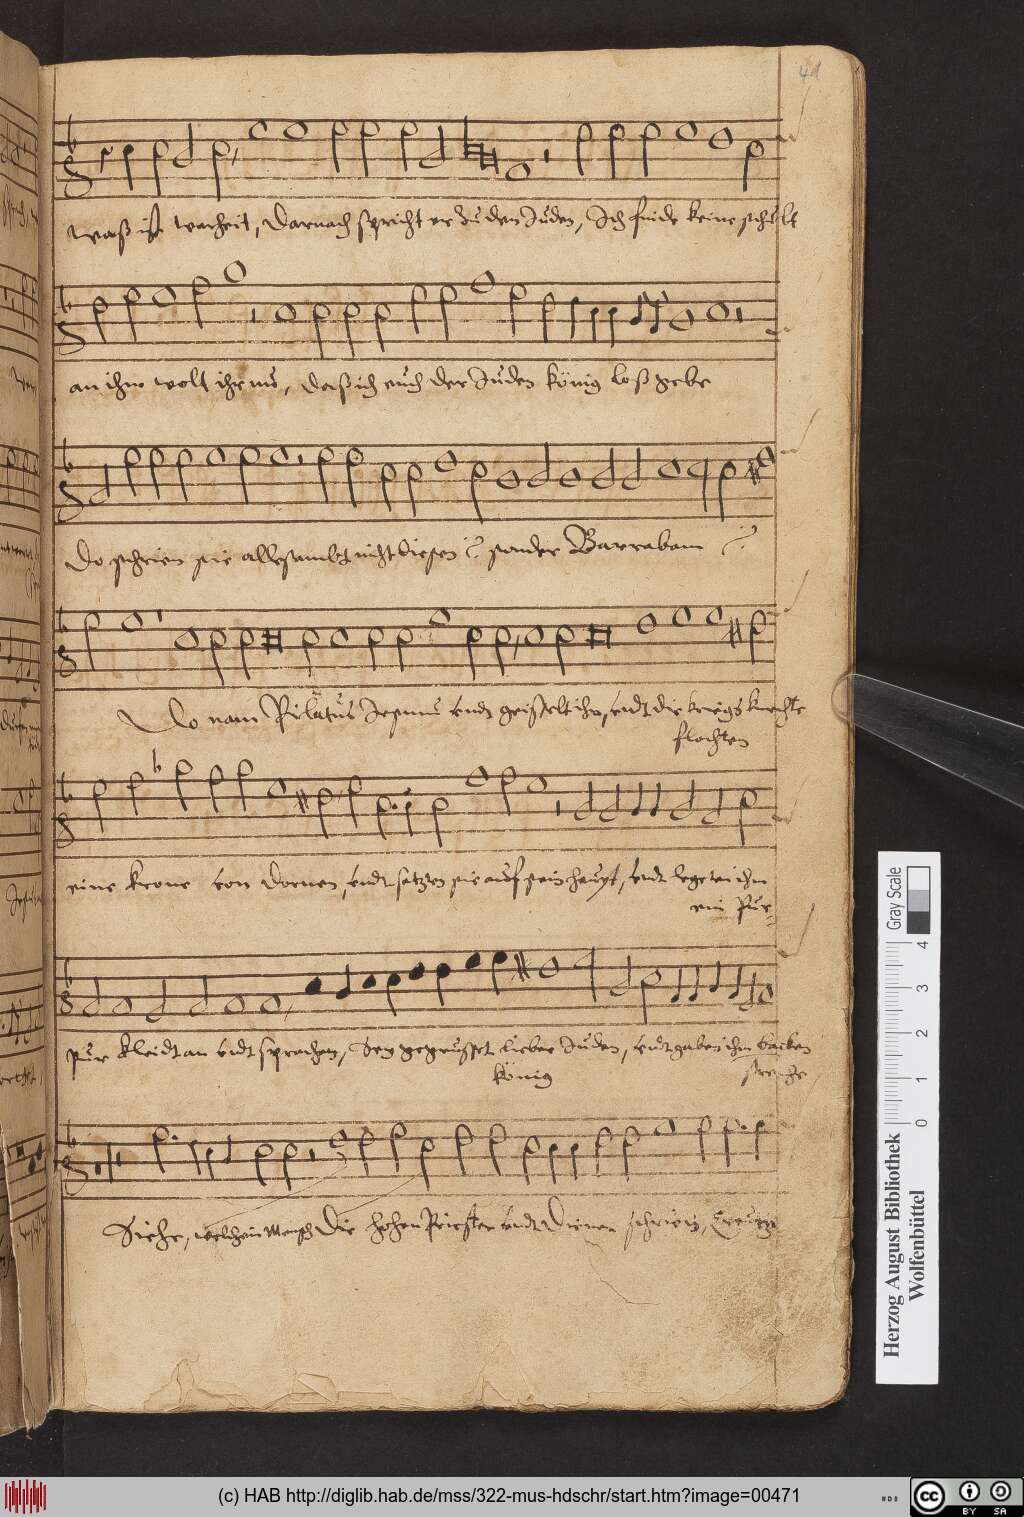 41
waß ist warheit, Darnach spricht er zu den Juden, Ich finde keine schult
an ihm wolt ihr nu, daß ich euch der Juden könig loß gebe
Do schrien sie allesambt nicht diesen ij sonder Barrabam ij
Do nam Pilatus Jesum undt geisselt ihn, undt die kriegs knechte
flochten
eine krone von dornen, undt satzten sie auf sein haupt, undt legeten ihm
ein Pur-
pur kleidt an undt sprachen, Sey gegrüsset lieber Juden, undt gaben ihm backen
könig streiche
Siehe, welch ein Mensch Die hohen Priester undt Diener schriein, Creutzge
Gray Scale
0 1 2 3 4
Herzog August Bibliothek
Wolfenbüttel
(c) HAB http://diglib.hab.de/mss/322-mus-hdschr/start.htm?image=00471
cc BY SA